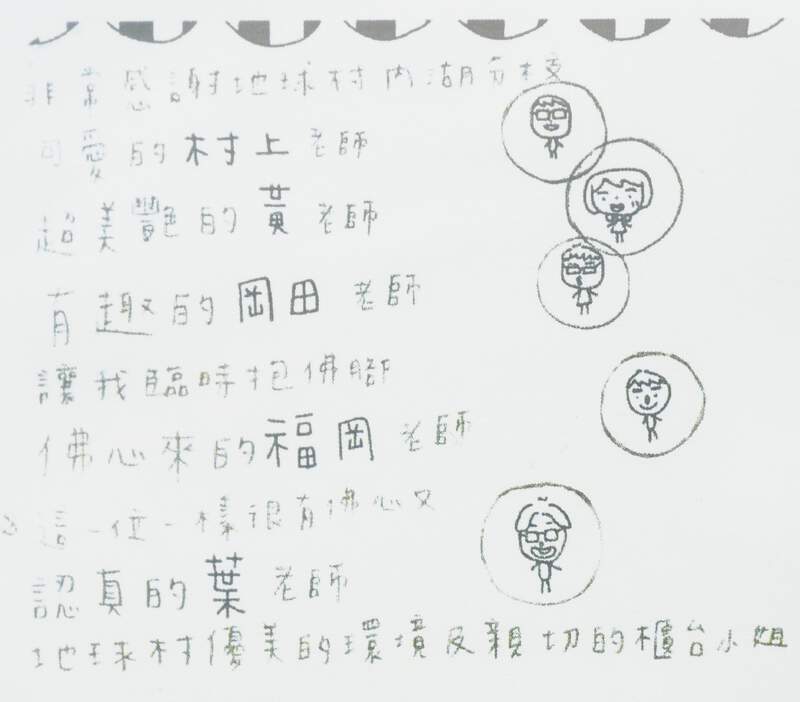 非常感謝地球村內湖分校
可愛的村上老師
超美艷的黃老師
有趣的岡田老師
讓我臨時抱佛腳
佛心來的福岡老師
這一位一樣很有佛心又
認真的葉老師
地球村優美的環境及親切的櫃台小姐